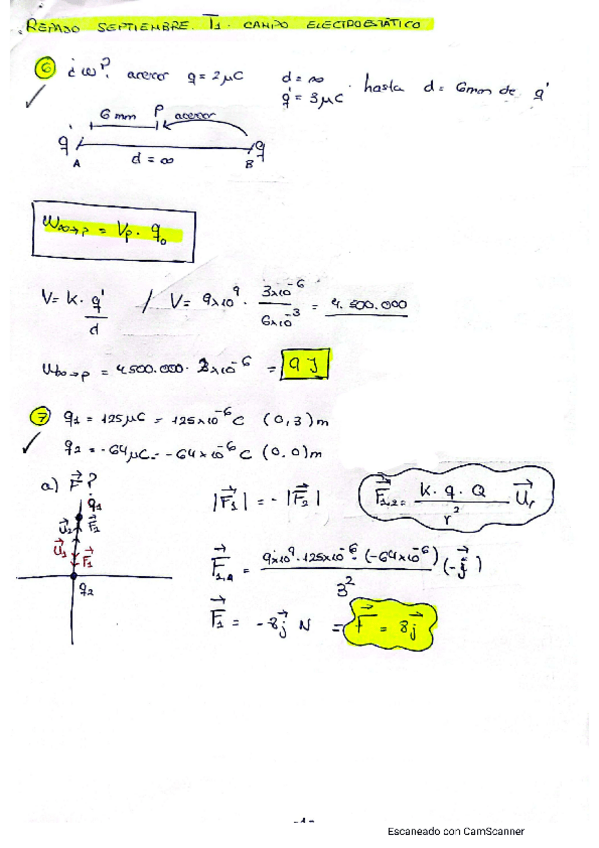 REPASO SEPTIEMBRE. T1. CAMPO ELECTROESTÁTICO
6 ¿W? acercar q = 2μC d = ∞ hasta d = 6mm de q'
q' = 3μC
6 mm P acercar
q' q
A d = ∞ B
W∞→p = Vp · q₀
V = K · q'/d / V = 9x10⁹ · 3x10⁻⁶/6x10⁻³ = 4.500.000
W∞→p = 4.500.000 · 2x10⁻⁶ = 9 J
7 q1 = 125μC = 125x10⁻⁶ C (0,3) m
q2 = -64μC = -64x10⁻⁶ C (0,0) m
a) F⃗?
q1
U⃗2 F⃗2
U⃗1 F⃗1
q2
|F⃗1| = - |F⃗2|
F⃗1,2 = K · q · Q / r² U⃗r
= 9x10⁹ · 125x10⁻⁶ (-64x10⁻⁶) / 3² (-j⃗)
F⃗1 = -8j⃗ N = F⃗ = 8j⃗
-4-
Escaneado con CamScanner